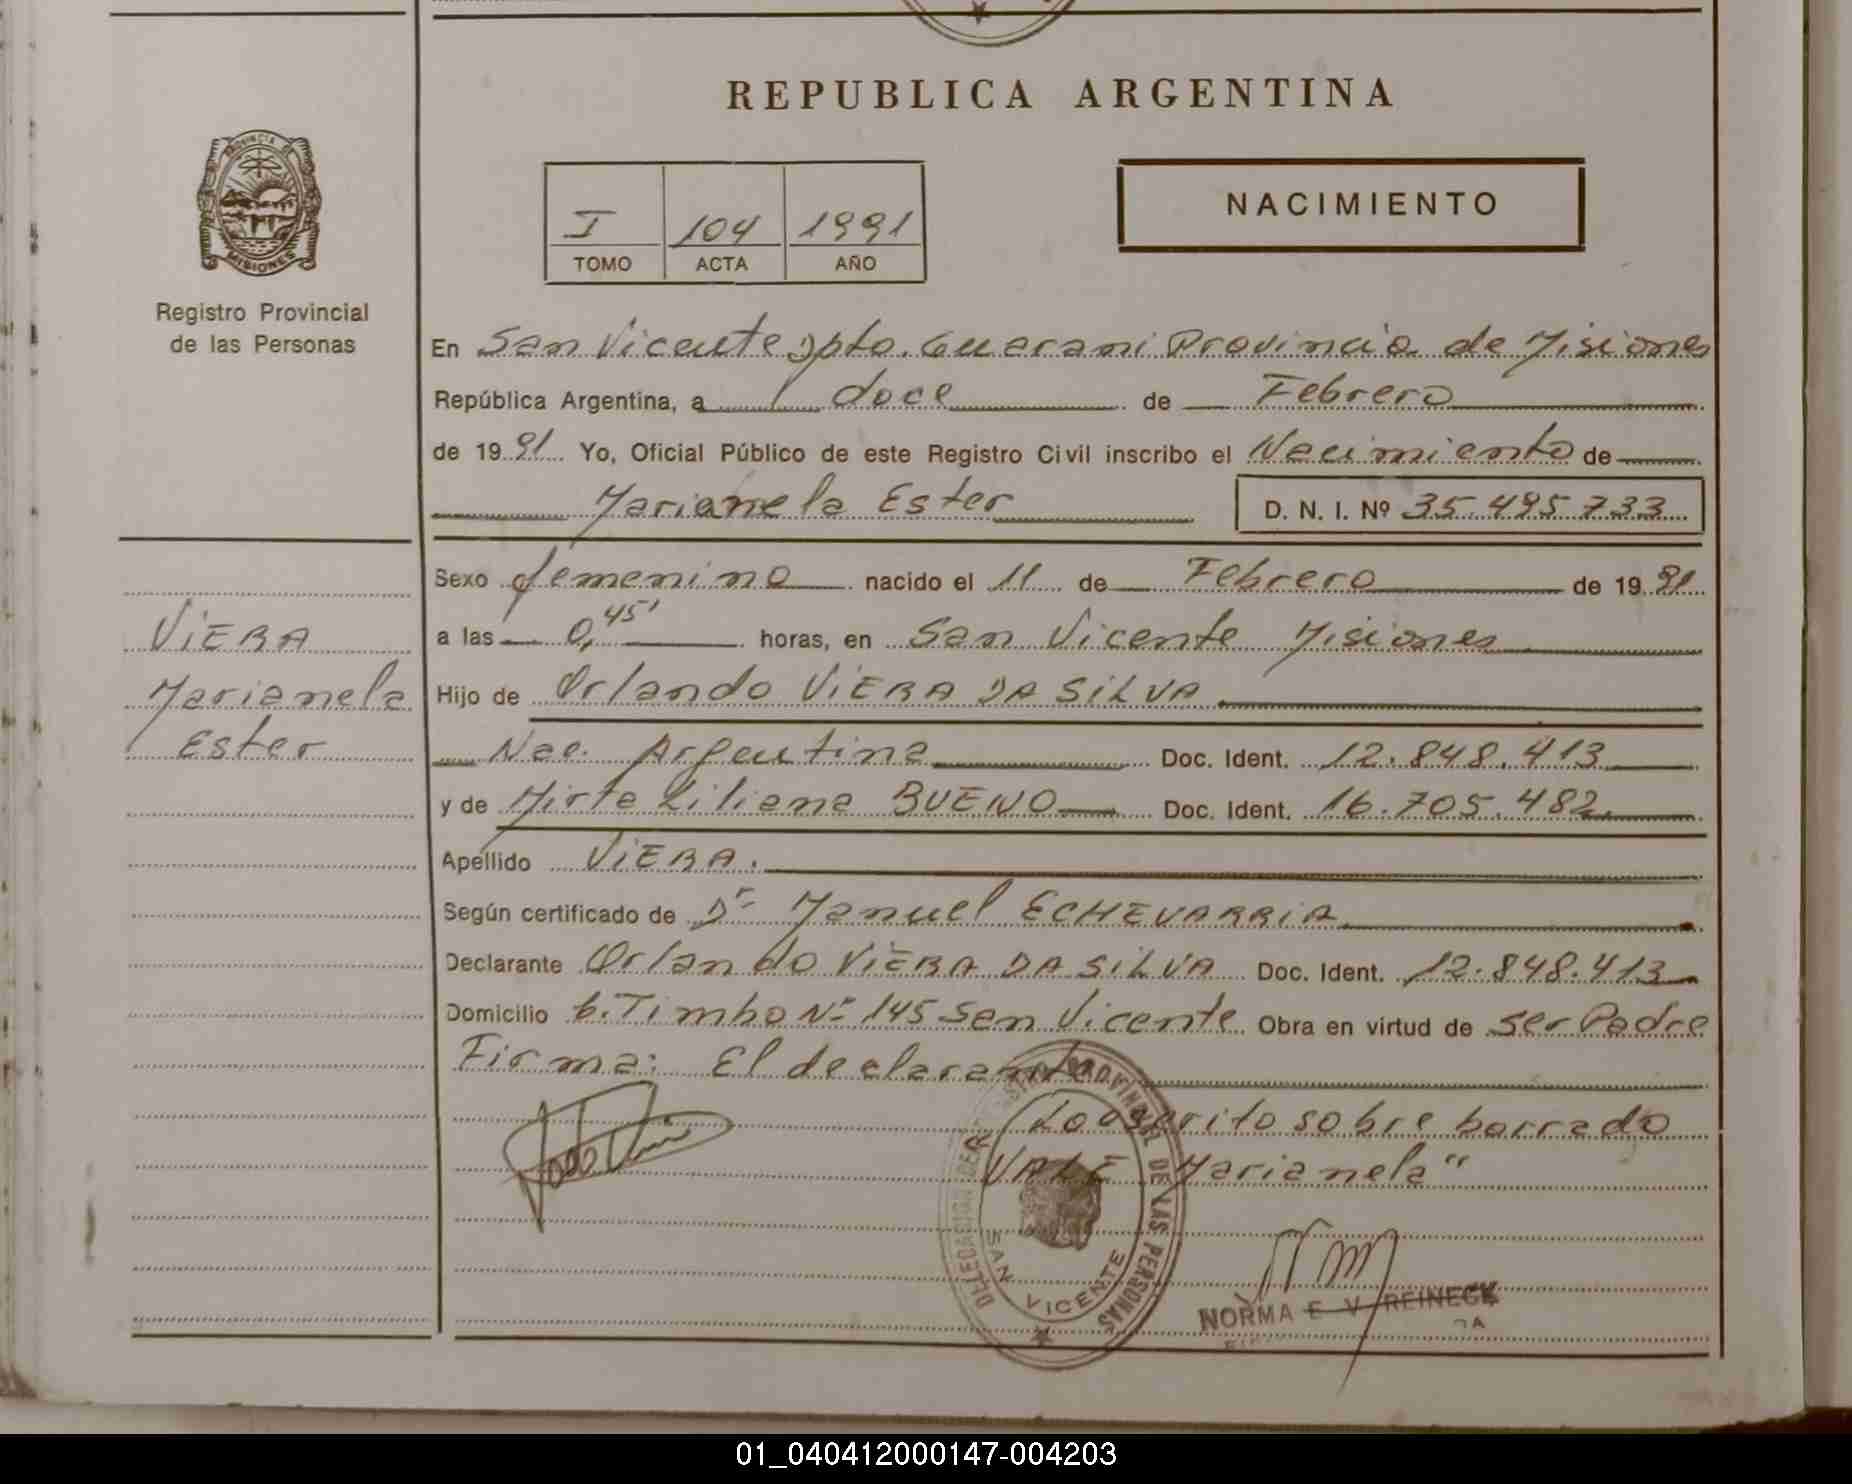 REPUBLICA ARGENTINA
PROVINCIA DE
MISIONES
Registro Provincial
de las Personas
I 104 1991
TOMO ACTA AÑO
NACIMIENTO
En San Vicente Dpto. Guarani Provincia de Misiones
República Argentina, a doce de Febrero
de 1991 Yo, Oficial Público de este Registro Civil inscribo el Nacimiento de
Marianela Ester D. N. I. Nº 35.495.733
Sexo femenino nacido el 11 de Febrero de 1991
a las 0,45' horas, en San Vicente Misiones
Hijo de Orlando VIERA DA SILVA
Nac. Argentina Doc. Ident. 12.848.413
y de Mirta Liliana BUENO Doc. Ident. 16.705.482.
Apellido VIERA.
Según certificado de Dr Manuel ECHEVARRIA
Declarante Orlando VIERA DA SILVA Doc. Ident. 12.848.413
Domicilio b. Timbo Nº 145 San Vicente Obra en virtud de ser Padre
Firma: El declarante
Lo escrito sobre borrado
VALE "Marianela"
VIERA
Marianela
Ester
DELEGACION DEL REGISTRO PROVINCIAL DE LAS PERSONAS
SAN VICENTE
NORMA E. V. REINECK
01_040412000147-004203